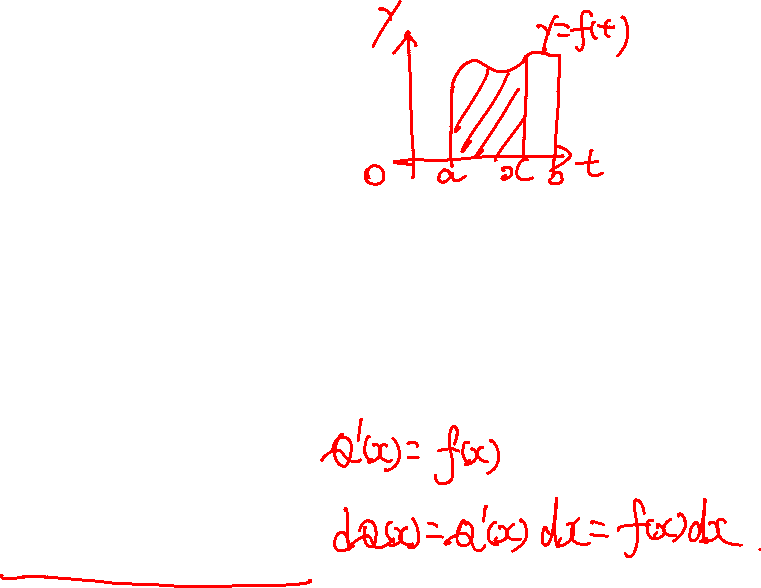 y
y=f(t)
0 a x b t
Q'(x)=f(x)
dQ(x)=Q'(x)dx=f(x)dx.